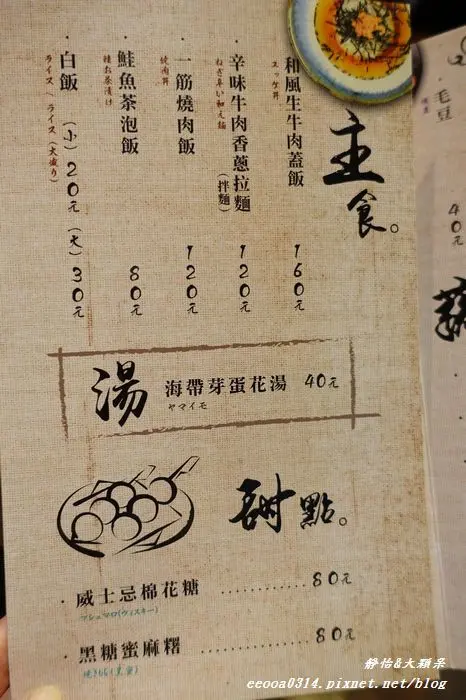 主食。
和風生牛肉蓋飯 160元
ユッケ丼
辛味牛肉香蔥拉麵(拌麵) 120元
一筋燒肉飯 120元
焼肉丼
鮭魚茶泡飯 80元
鮭お茶漬け
白飯 (小)20元 (大)30元
ライス、ライス(大盛り)
湯 海帶芽蛋花湯 40元
ヤマイモ
甜點。
威士忌棉花糖 ............ 80元
マシュマロ(ウィスキー)
黑糖蜜麻糬 ............ 80元
毛豆
40元
靜怡&大顆呆
eeooa0314.pixnet.net/blog